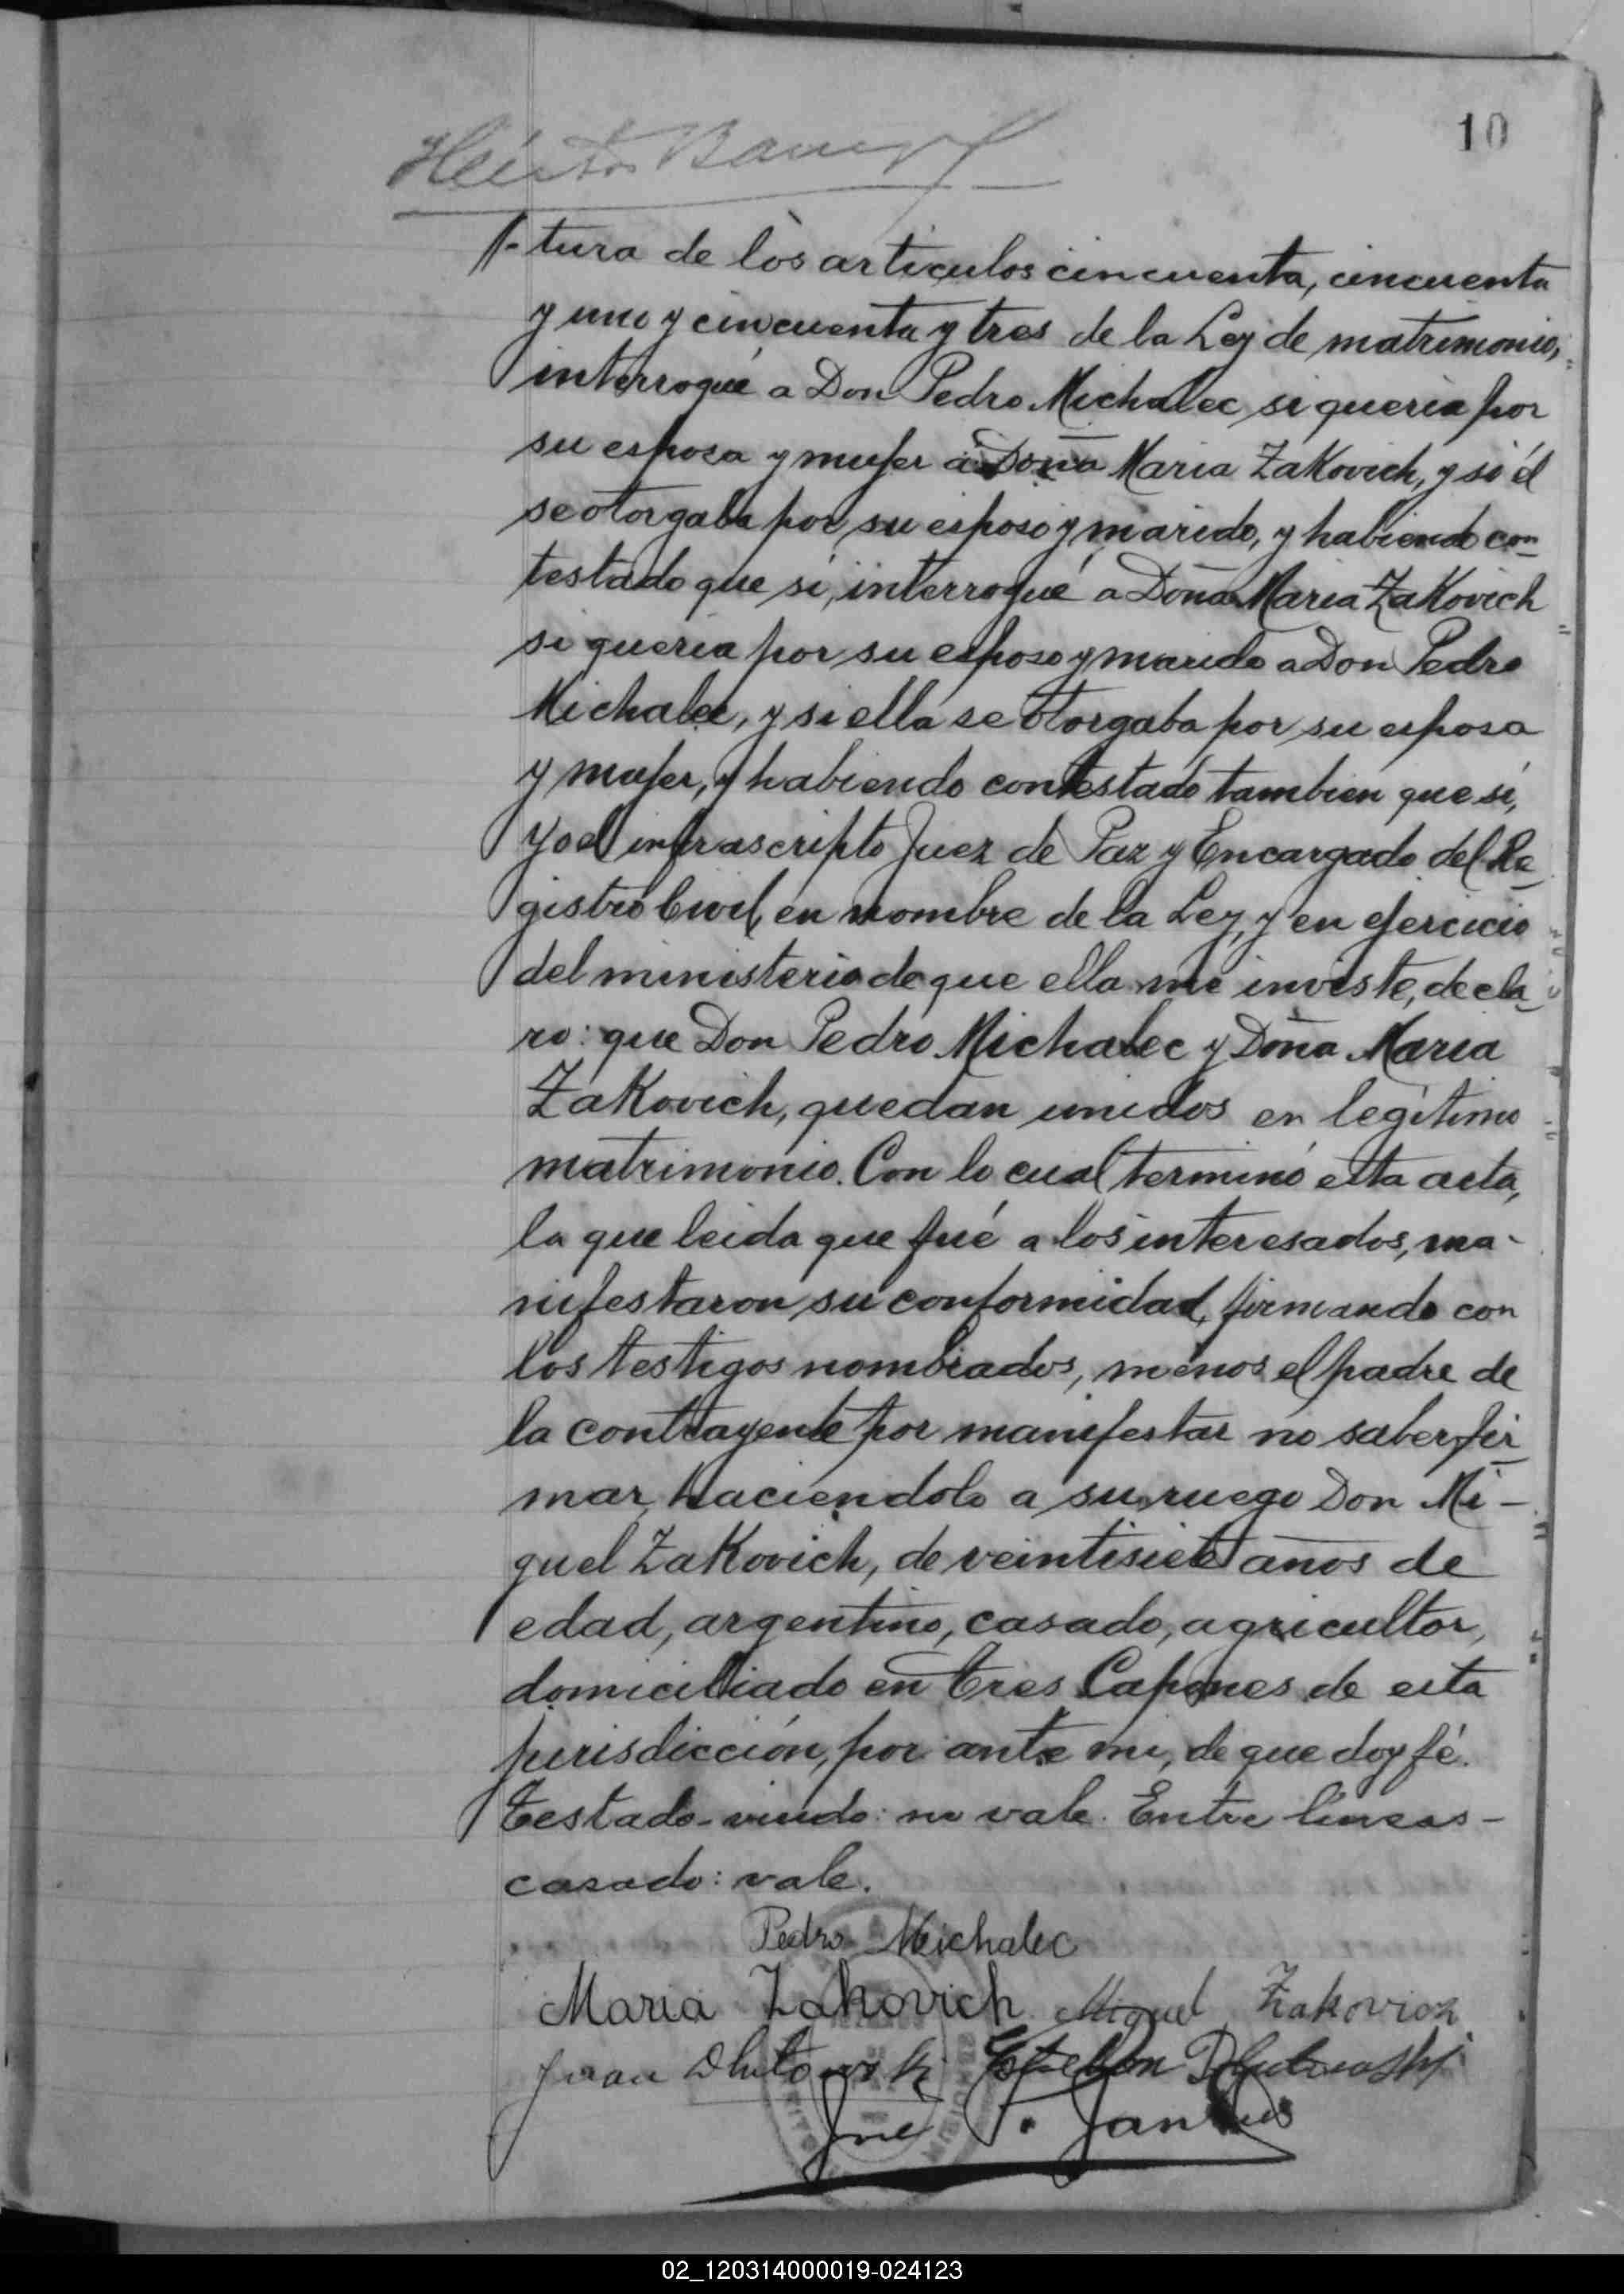 10
Héctor
//-tura de los articulos cincuenta, cincuenta
y uno y cincuenta y tres de la Ley de matrimonio,
interrogué a Don Pedro Michalec si queria por
su esposa y mujer a Doña Maria Zakovich, y si él
se otorgaba por su esposo y marido, y habiendo con
testado que sí, interrogué a Doña Maria Zakovich
si queria por su esposo y marido a Don Pedro
Michalec, y si ella se otorgaba por su esposa
y mujer, y habiendo contestado tambien que sí,
Yo el infrascripto Juez de Paz y Encargado del Re
gistro Civil, en nombre de la Ley, y en ejercicio
del ministerio de que ella me inviste, decla
ro: que Don Pedro Michalec y Doña Maria
Zakovich, quedan unidos en legítimo
matrimonio. Con lo cual terminó esta acta,
la que leida que fué a los interesados, ma-
nifestaron su conformidad, firmando con
los testigos nombrados, menos el padre de
la contrayente por manifestar no saber fir
mar, haciendolo a su ruego Don Mi-
guel Zakovich, de veintisiete años de
edad, argentino, casado, agricultor,
domiciliado en Tres Capones de esta
jurisdicción, por ante mi, de que doy fé.
Testado-viudo: no vale. Entre líneas-
casado: vale.
Pedro Michalec
Maria Zakovich Miguel Zakovich
Juan Dlutowski Esteban Dlutowski
José F.
02_120314000019-024123